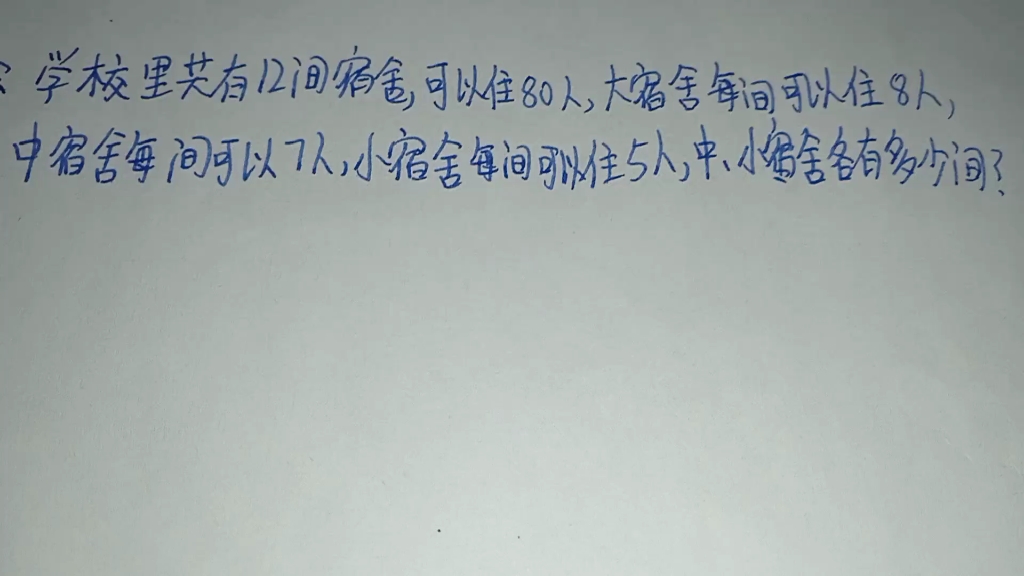 学校里共有12间宿舍,可以住80人,大宿舍每间可以住8人,
中宿舍每间可以7人,小宿舍每间可以住5人,中、小宿舍各有多少间?